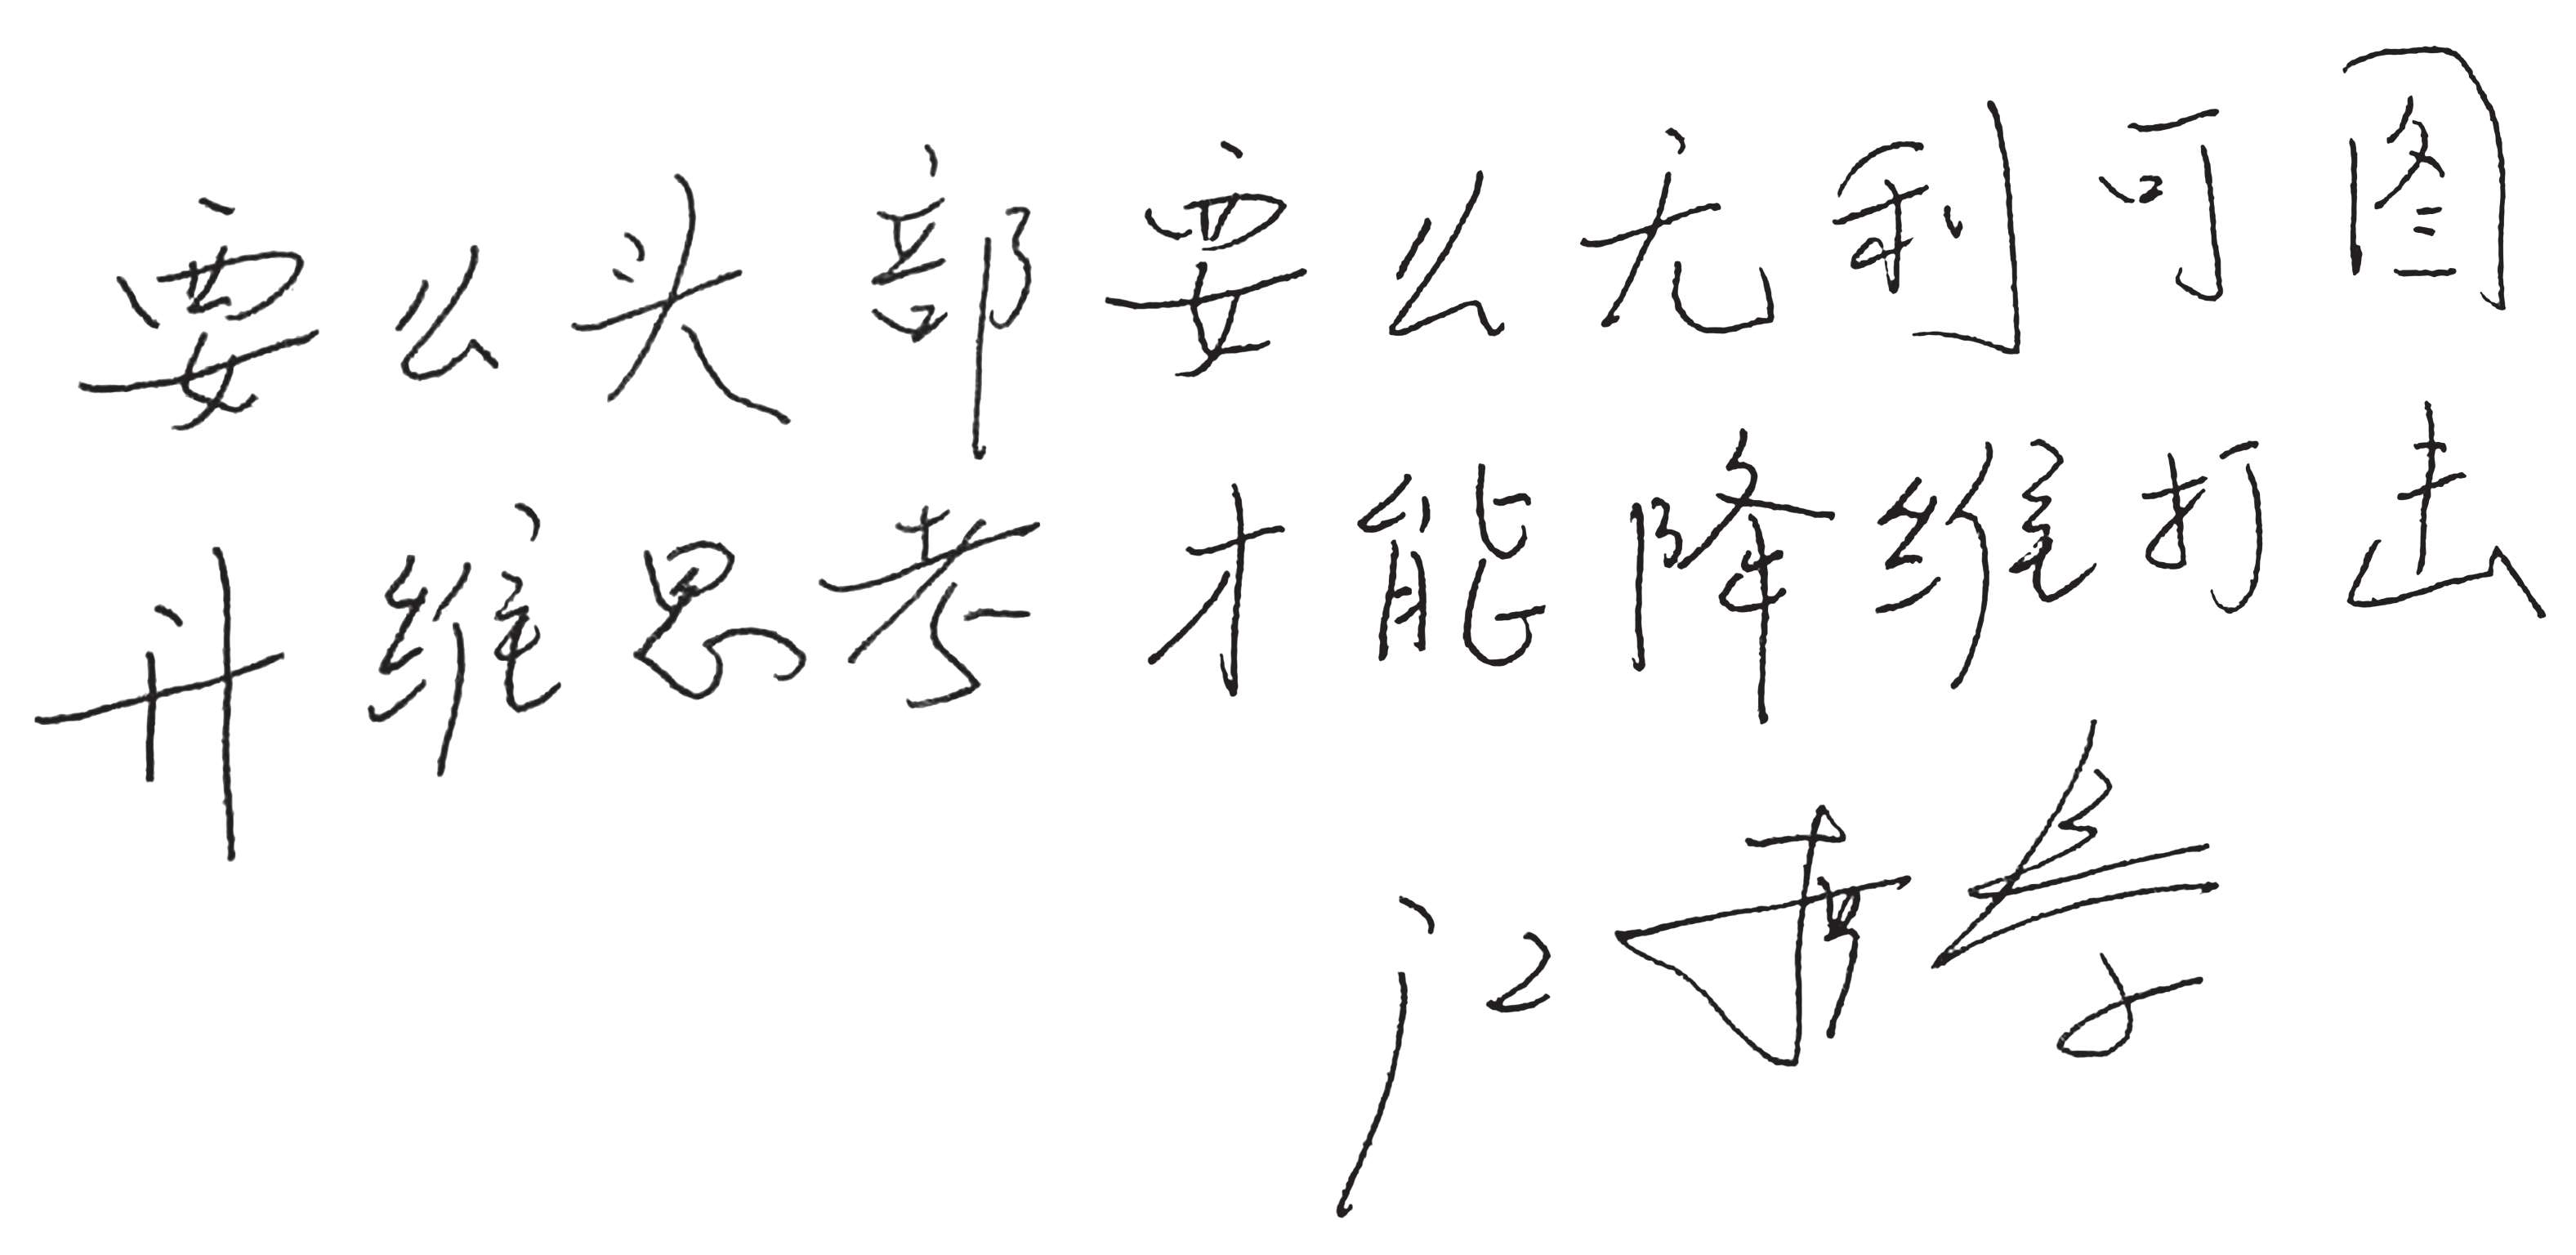 要么头部要么无利可图
升维思考才能降维打击